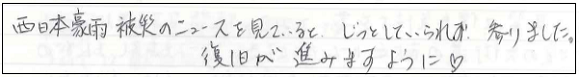 西日本豪雨 被災のニュースを見ていると、じっとしていられず、参りました。
復旧が進みますように♡